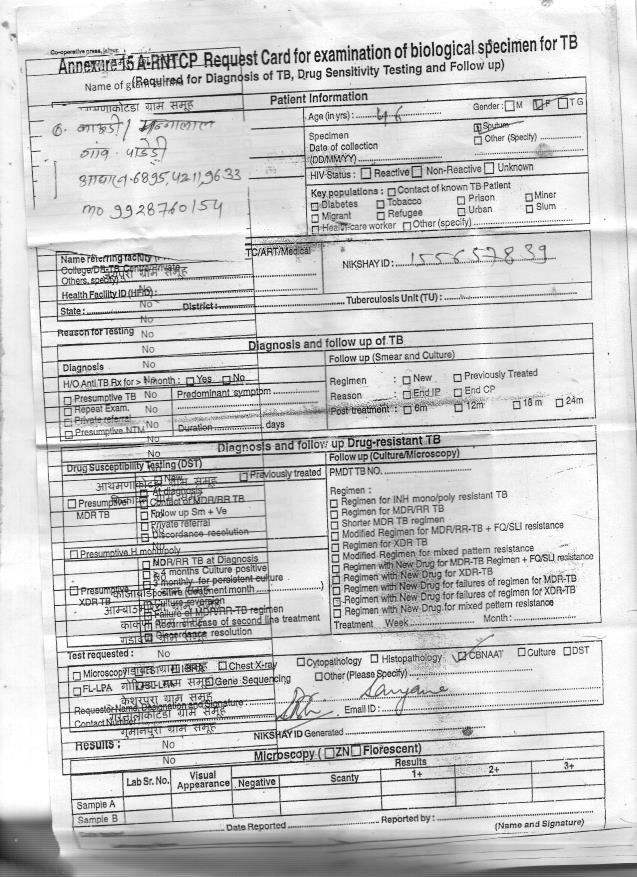 Co-operative press, jaipur
Annexure 15 A-RNTCP Request Card for examination of biological specimen for TB
(Required for Diagnosis of TB, Drug Sensitivity Testing and Follow up)
Name of gram
Patient Information
Age (in yrs) : 46
Gender : M F TG
आथमणाकोटडा ग्राम समूह
Specimen
Sputum
Date of collection
Other (Specify)
(DD/MM/YY)
गांव
6895,4211,9633
mo 9928760154
HIV Status : Reactive Non-Reactive Unknown
Key populations : Contact of known TB Patient
Diabetes Tobacco Prison Miner
Migrant Refugee Urban Slum
Health care worker Other (specify)
Name referring facility
TC/ART/Medical
Others, specify
ग्राम समूह
NIKSHAY ID : 155657839
Health Facility ID (HFID) :
State : District : Tuberculosis Unit (TU) :
No
Reason for Testing No
No
Diagnosis and follow up of TB
Diagnosis No
Follow up (Smear and Culture)
H/O Anti TB Rx for > month : Yes No
Regimen : New Previously Treated
Presumptive TB No Predominant symptom
Reason : End IP End CP
Repeat Exam. No
Private referral No
Post treatment : 6m 12m 18 m 24m
Presumptive NTM No Duration days
Diagnosis and follow up Drug-resistant TB
Drug Susceptibility Testing (DST)
Follow up (Culture/Microscopy)
New Previously treated
PMDT TB NO.
At diagnosis
Regimen :
Presumptive Contact of MDR/RR TB
MDR TB Follow up Sm + Ve
Private referral
Discordance resolution
Regimen for INH mono/poly resistant TB
Regimen for MDR/RR TB
Shorter MDR TB regimen
Modified Regimen for MDR/RR-TB + FQ/SLI resistance
Regimen for XDR TB
Presumptive H mono/poly
Modified Regimen for mixed pattern resistance
MDR/RR TB at Diagnosis
Regimen with New Drug for MDR-TB Regimen + FQ/SLI resistance
4 months Culture positive
Regimen with New Drug for XDR-TB
3 monthly for persistent culture
Regimen with New Drug for failures of regimen for MDR-TB
Presumptive positive (treatment month )
Regimen with New Drug for failures of regimen for XDR-TB
XDR TB Culture reversion
Regimen with New Drug for mixed pettern resistance
Failure of MDR/RR-TB regimen
Recurrent case of second line treatment
Treatment Week Month :
Discordance resolution
Test requested : No
Microscopy Chest X-ray Cytopathology Histopathology CBNAAT Culture DST
FL-LPA Gene Sequencing Other (Please Specify)
केशरपुरा ग्राम समूह
Requestor Name, Designation and Signature :
Contact Number Email ID :
गुमानपुरा ग्राम समूह
NIKSHAY ID Generated
Results : No
No
Microscopy ( ZN Florescent)
Lab Sr. No. Visual Appearance Negative Results
Scanty 1+ 2+ 3+
Sample A
Sample B
Date Reported Reported by :
(Name and Signature)